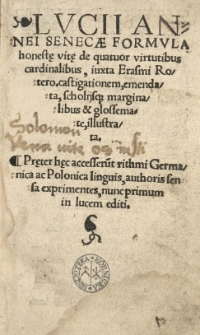 LVCII AN-
NEI SENECÆ FORMVLA
honestę vitę de quatuor virtutibus
cardinalibus, iuxta Erasmi Ro-
tero, castigationem, emenda-
ta, scholijsq; margina-
libus & glossema-
te, illustra-
ta.
Solomon
Vena vite os iusti
¶ Pręter hęc accesserūt rithmi Germa-
nica ac Polonica linguis, authoris sen-
sa exprimentes, nunc primum
in lucem editi.